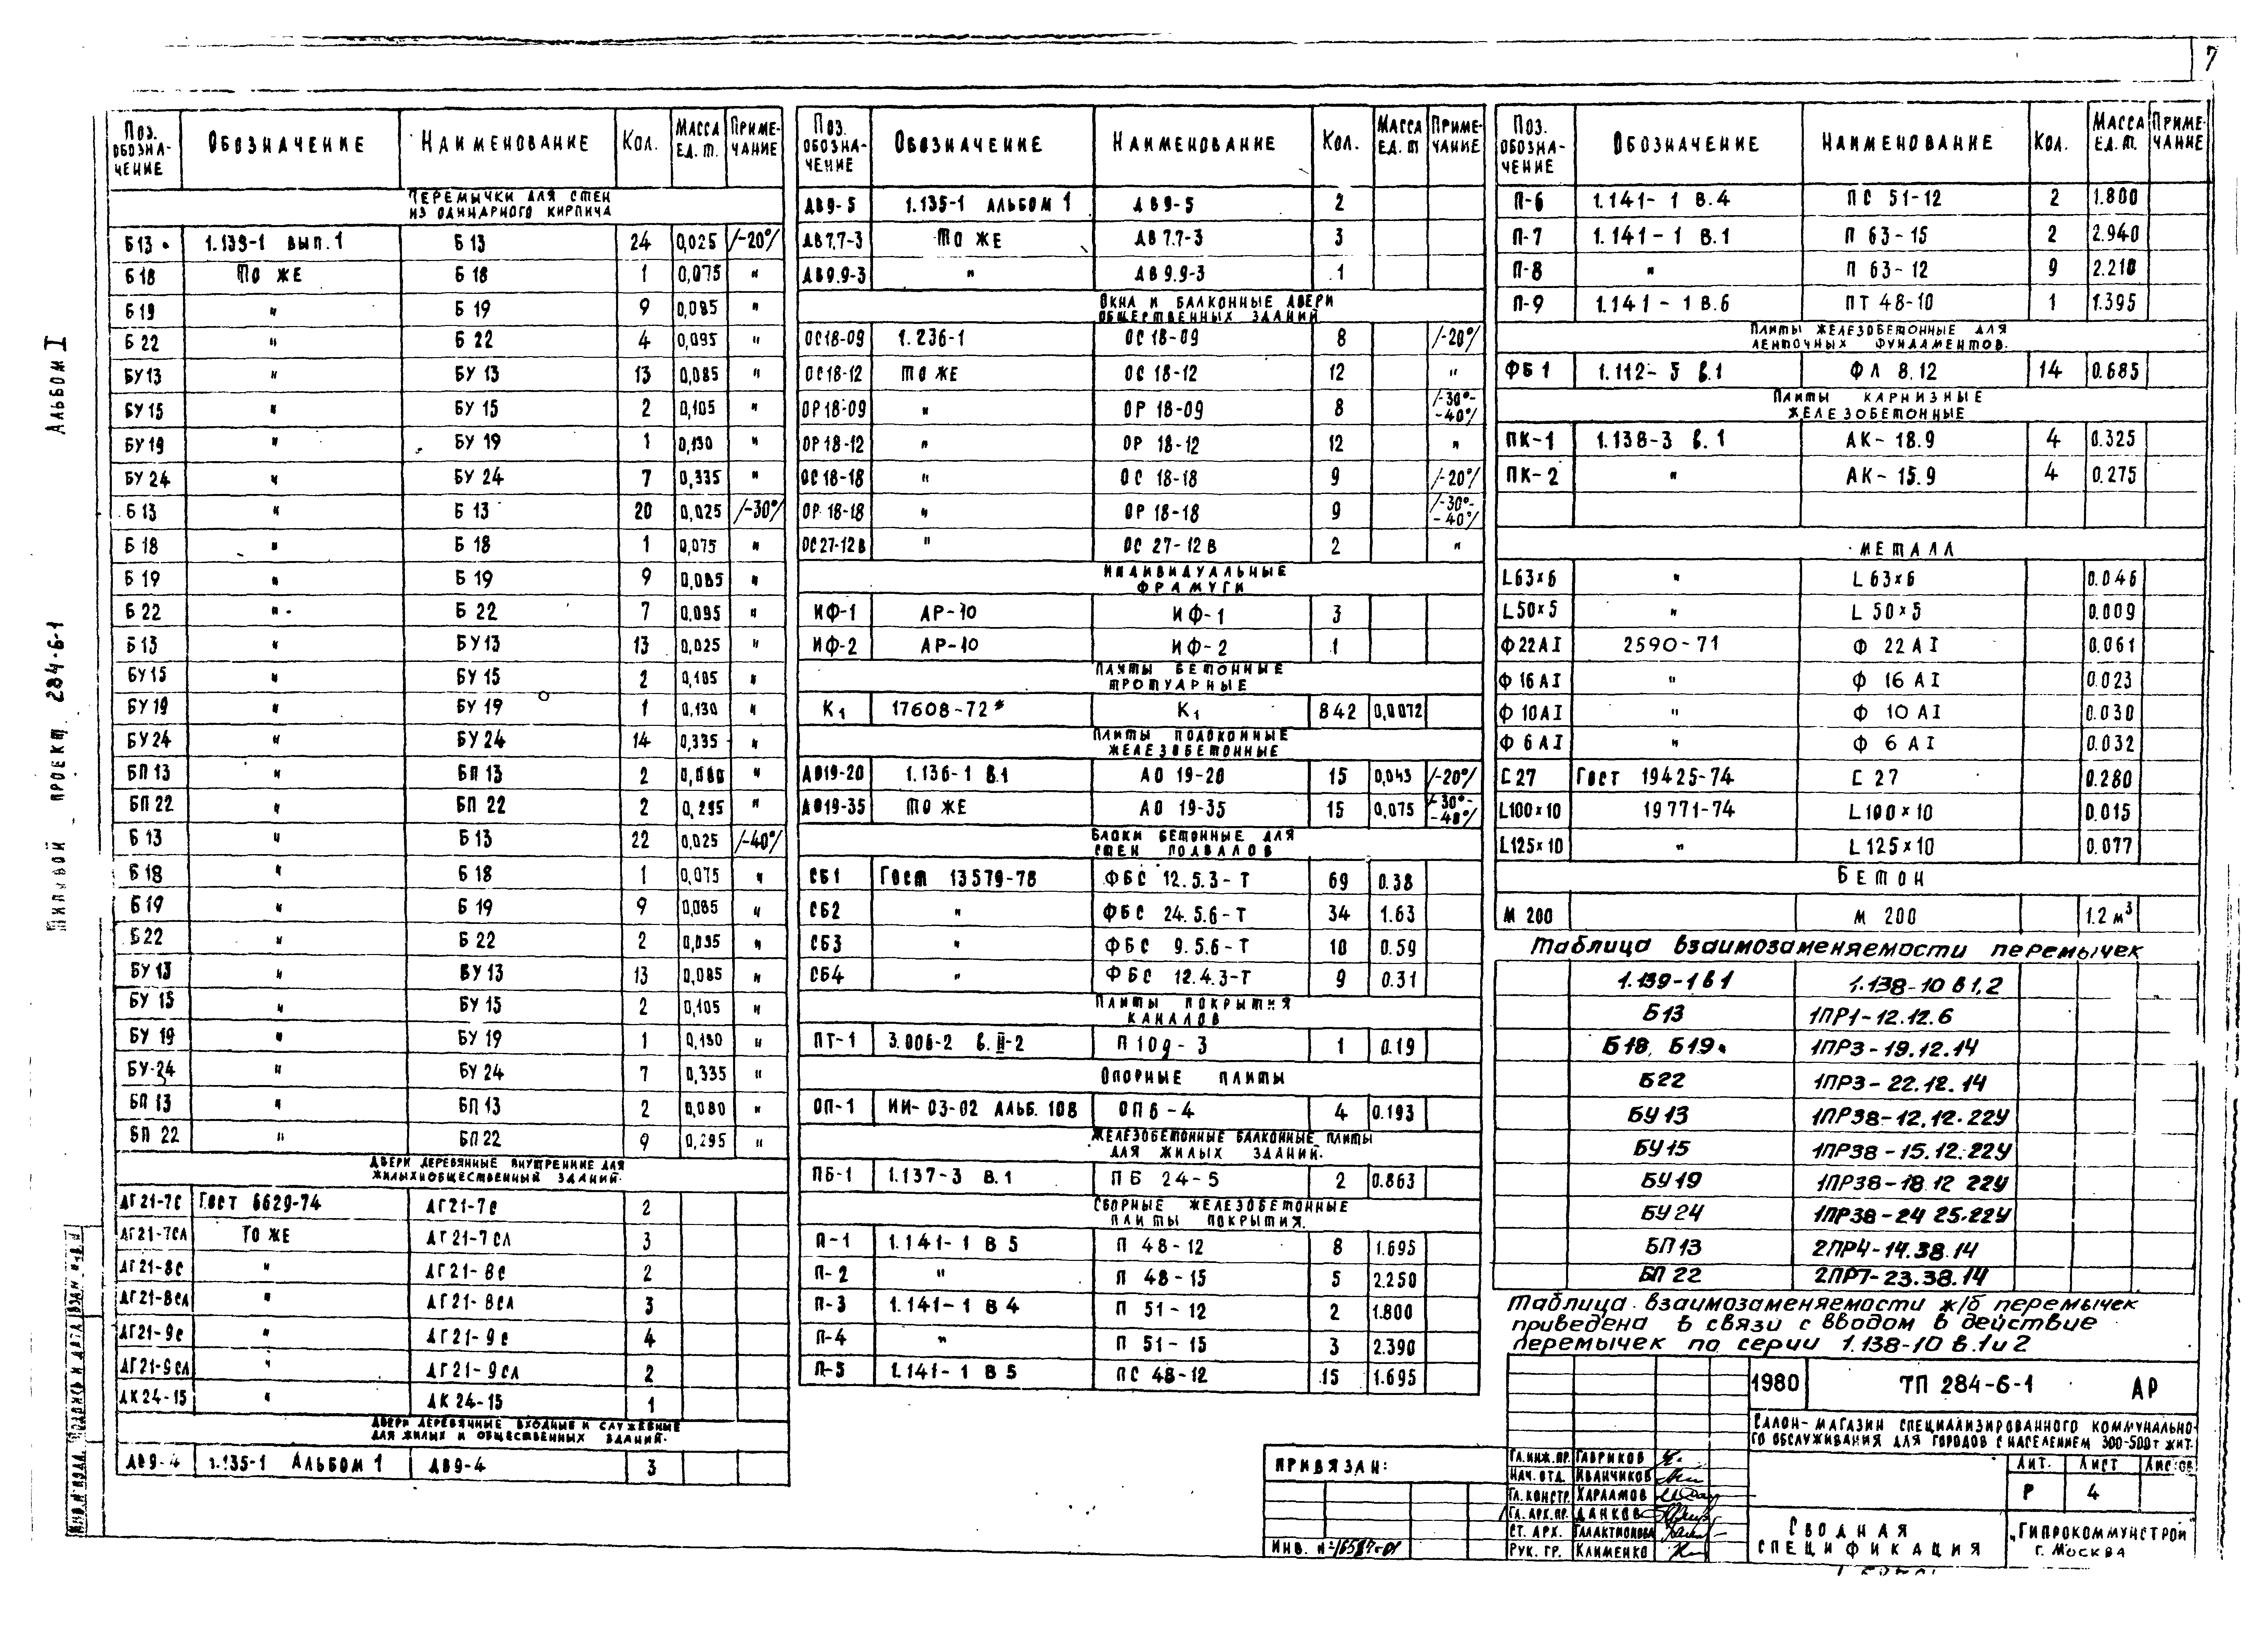 7
Альбом I
Типовой проект 284-6-1
Поз. обозначение Обозначение Наименование Кол. Масса ед. т. Примечание
Перемычки для стен
из одинарного кирпича
Б13 1.139-1 вып.1 Б 13 24 0,025 /-20°/
Б18 То же Б 18 1 0,075 "
Б19 " Б 19 9 0,085 "
Б 22 " Б 22 4 0,095 "
БУ13 " БУ 13 13 0,085 "
БУ15 " БУ 15 2 0,105 "
БУ19 " БУ 19 1 0,130 "
БУ 24 " БУ 24 7 0,335 "
Б 13 " Б 13 20 0,025 /-30°/
Б 18 " Б 18 1 0,075 "
Б 19 " Б 19 9 0,085 "
Б 22 " Б 22 7 0,095 "
Б13 " БУ13 13 0,025 "
БУ15 " БУ 15 2 0,105 "
БУ19 " БУ 19 1 0,130 "
БУ24 " БУ 24 14 0,335 "
БП 13 " БП 13 2 0,080 "
БП 22 " БП 22 2 0,295 "
Б 13 " Б 13 22 0,025 /-40°/
Б 18 " Б 18 1 0,075 "
Б19 " Б 19 9 0,085 "
Б22 " Б 22 2 0,095 "
БУ 13 " БУ 13 13 0,085 "
БУ 15 " БУ 15 2 0,105 "
БУ 19 " БУ 19 1 0,130 "
БУ-24 " БУ 24 7 0,335 "
БП 13 " БП 13 2 0,080 "
БП 22 " БП 22 9 0,295 "
Двери деревянные внутренние для
жилых и общественный зданий.
ДГ21-7С Гост 6629-74 ДГ21-7с 2
ДГ21-7СЛ То же ДГ21-7сл 3
ДГ21-8с " ДГ21-8с 2
ДГ21-8сл " ДГ21-8сл 3
ДГ21-9с " ДГ21-9с 4
ДГ21-9сл " ДГ21-9сл 2
ДК24-15 " ДК 24-15 1
Двери деревянные входные и служебные
для жилых и общественных зданий.
ДВ9-4 1.135-1 Альбом 1 ДВ9-4 3
Поз. обозначение Обозначение Наименование Кол. Масса ед. т Примечание
ДВ9-5 1.135-1 Альбом 1 ДВ9-5 2
ДВ7.7-3 То же ДВ 7.7-3 3
ДВ9.9-3 " ДВ 9.9-3 1
Окна и балконные двери
общественных зданий
ОС18-09 1.236-1 ОС 18-09 8 /-20°/
ОС18-12 То же ОС 18-12 12 "
ОР18-09 " ОР 18-09 8 /-30°- -40°/
ОР18-12 " ОР 18-12 12 "
ОС 18-18 " ОС 18-18 9 /-20°/
ОР 18-18 " ОР 18-18 9 /-30°- -40°/
ОС27-12В " ОС 27-12 В 2 "
Индивидуальные
фрамуги
ИФ-1 АР-10 ИФ-1 3
ИФ-2 АР-10 ИФ-2 1
Плиты бетонные
тротуарные
К1 17608-72* К1 842 0,0072
Плиты подоконные
железобетонные
АО19-20 1.136-1 в.1 АО 19-20 15 0,043 /-20°/
АО19-35 То же АО 19-35 15 0,075 /-30°- -40°/
Блоки бетонные для
стен подвалов
СБ1 Гост 13579-78 ФБС 12.5.3-Т 69 0.38
СБ2 " ФБС 24.5.6-Т 34 1.63
СБ3 " ФБС 9.5.6-Т 10 0.59
СБ4 " ФБС 12.4.3-Т 9 0.31
Плиты покрытия
каналов
ПТ-1 3.006-2 в.II-2 П 10д-3 1 0.19
Опорные плиты
ОП-1 ИИ-03-02 Альб. 108 ОП6-4 4 0.193
Железобетонные балконные плиты
для жилых зданий.
ПБ-1 1.137-3 в.1 ПБ 24-5 2 0.863
Сборные железобетонные
плиты покрытия.
П-1 1.141-1 в 5 П 48-12 8 1.695
П-2 " П 48-15 5 2.250
П-3 1.141-1 в 4 П 51-12 2 1.800
П-4 " П 51-15 3 2.390
П-5 1.141-1 в 5 ПС 48-12 15 1.695
Поз. обозначение Обозначение Наименование Кол. Масса ед. т. Примечание
П-6 1.141-1 в.4 ПС 51-12 2 1.800
П-7 1.141-1 в.1 П 63-15 2 2.940
П-8 " П 63-12 9 2.210
П-9 1.141-1 в.6 ПТ 48-10 1 1.395
Плиты железобетонные для
ленточных фундаментов.
ФБ1 1.112-5 в.1 ФЛ 8.12 14 0.685
Плиты карнизные
железобетонные
ПК-1 1.138-3 в.1 АК-18.9 4 0.325
ПК-2 " АК-15.9 4 0.275
Металл
L63×6 " L 63×6 0.046
L50×5 " L 50×5 0.009
Ф22АI 2590-71 Ф 22АI 0.061
Ф16АI " Ф 16 АI 0.023
Ф10АI " Ф 10 АI 0.030
Ф6АI " Ф 6 АI 0.032
С27 Гост 19425-74 С 27 0.280
L100×10 19771-74 L100×10 0.015
L125×10 " L125×10 0.077
Бетон
М 200 М 200 1.2 м³
Таблица взаимозаменяемости перемычек
1.139-1 в 1 1.138-10 в 1,2
Б13 1ПР1-12.12.6
Б18, Б19 1ПР3-19.12.14
Б22 1ПР3-22.12.14
БУ13 1ПР38-12.12.22У
БУ15 1ПР38-15.12.22У
БУ19 1ПР38-18.12 22У
БУ24 1ПР38-24 25.22У
БП13 2ПР4-14.38.14
БП 22 2ПР7-23.38.14
Таблица взаимозаменяемости ж/б перемычек
приведена в связи с вводом в действие
перемычек по серии 1.138-10 в.1 и 2
1980 ТП 284-6-1 АР
Салон-магазин специализированного коммунально-
го обслуживания для городов с населением 300-500т жит.
Гл.инж.пр. Гавриков
Нач. отд. Иванчиков
Гл. констр. Харламов
Гл. арх.пр. Данков
Ст. арх. Галактионова
Рук. гр. Клименко
Лит. Лист Листов
Р 4
Сводная
спецификация
"Гипрокоммунстрой"
г. Москва
Привязан:
Инв. №
Инв.№ подл. Подпись и дата Взам. инв.№